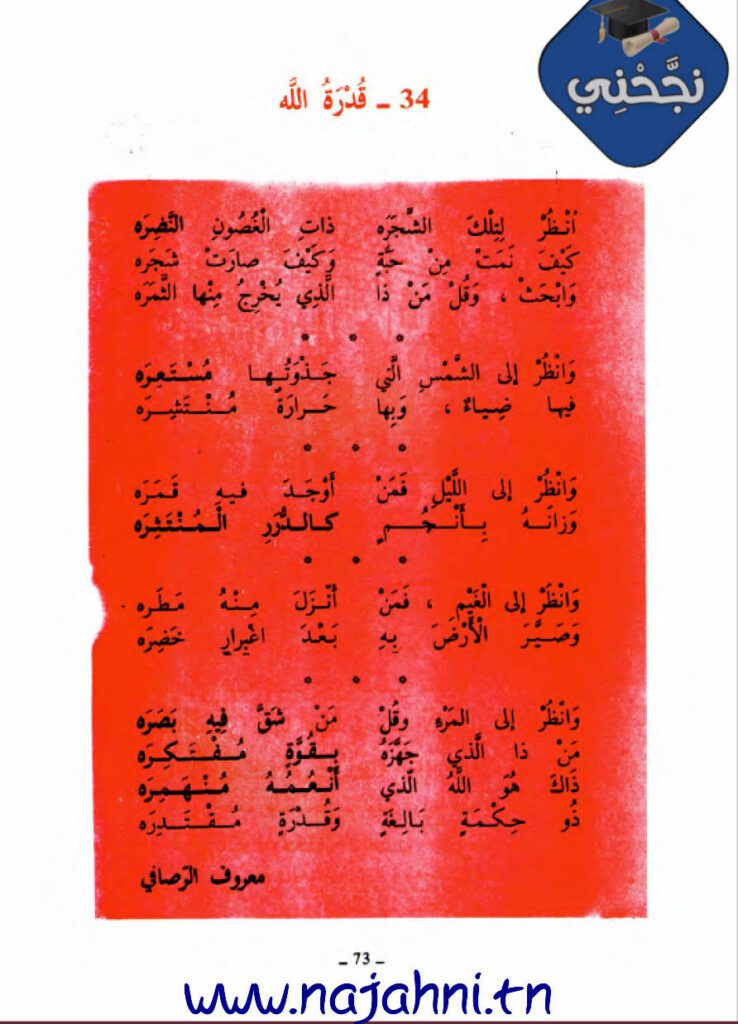 نَجَّحْنِي
34 ـ قُدْرَةُ اللَّه
اُنْظُرْ لِتِلْكَ الشَّجَرَه ذاتِ الْغُصُونِ النَّضِرَه
كَيْفَ نَمَتْ مِنْ حَبَّةٍ وَكَيْفَ صارَتْ شَجَرَه
وَابْحَثْ ، وَقُلْ مَنْ ذا الَّذِي يُخْرِجُ مِنْها الثَّمَرَه
* * *
وَانْظُرْ إلى الشَّمْسِ الَّتي جَذْوَتُها مُسْتَعِرَه
فيها ضِياءٌ ، وَبِها حَرارَةٌ مُنْتَشِرَه
* * *
وَانْظُرْ إلى اللَّيْلِ فَمَنْ أَوْجَدَ فيهِ قَمَرَه
وَزانَهُ بِأَنْجُمٍ كالدُّرَرِ المُنْتَثِرَه
* * *
وَانْظُرْ إلى الْغَيْمِ ، فَمَنْ أَنْزَلَ مِنْهُ مَطَره
وَصَيَّرَ الْأَرْضَ بِهِ بَعْدَ اغْبِرارٍ خَضِرَه
* * *
وَانْظُرْ إلى المَرْءِ وقُلْ مَنْ شَقَّ فِيهِ بَصَرَه
مَنْ ذا الَّذي جَهَّزَهُ بِقُوَّةٍ مُفْتَكِرَه
ذَاكَ هُوَ اللَّهُ الَّذي أَنْعُمُهُ مُنْهَمِرَه
ذُو حِكْمَةٍ بَالِغَةٍ وَقُدْرَةٍ مُقْتَدِرَه
معروف الرّصافي
ـ 73 ـ
www.najahni.tn